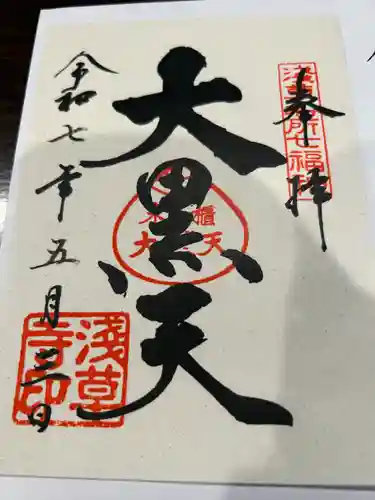 奉拝
浅草名所七福神
大黒天
米櫃
大黒天
令和七年五月三日
浅草
寺印